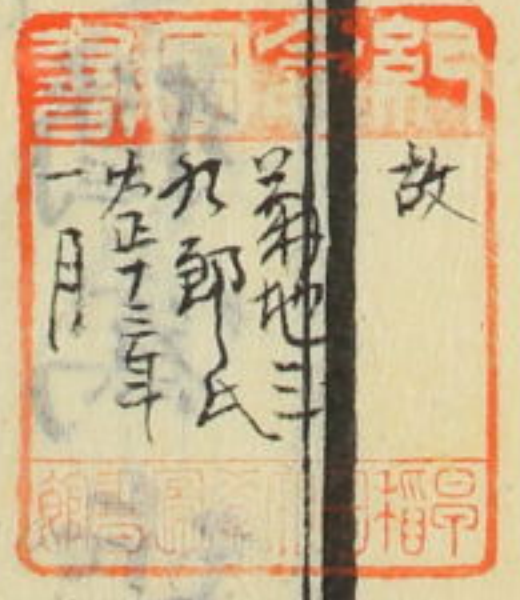 紀念圖書
故
菊地三
九郎氏
大正十二年
一月
早稻田大學圖書館